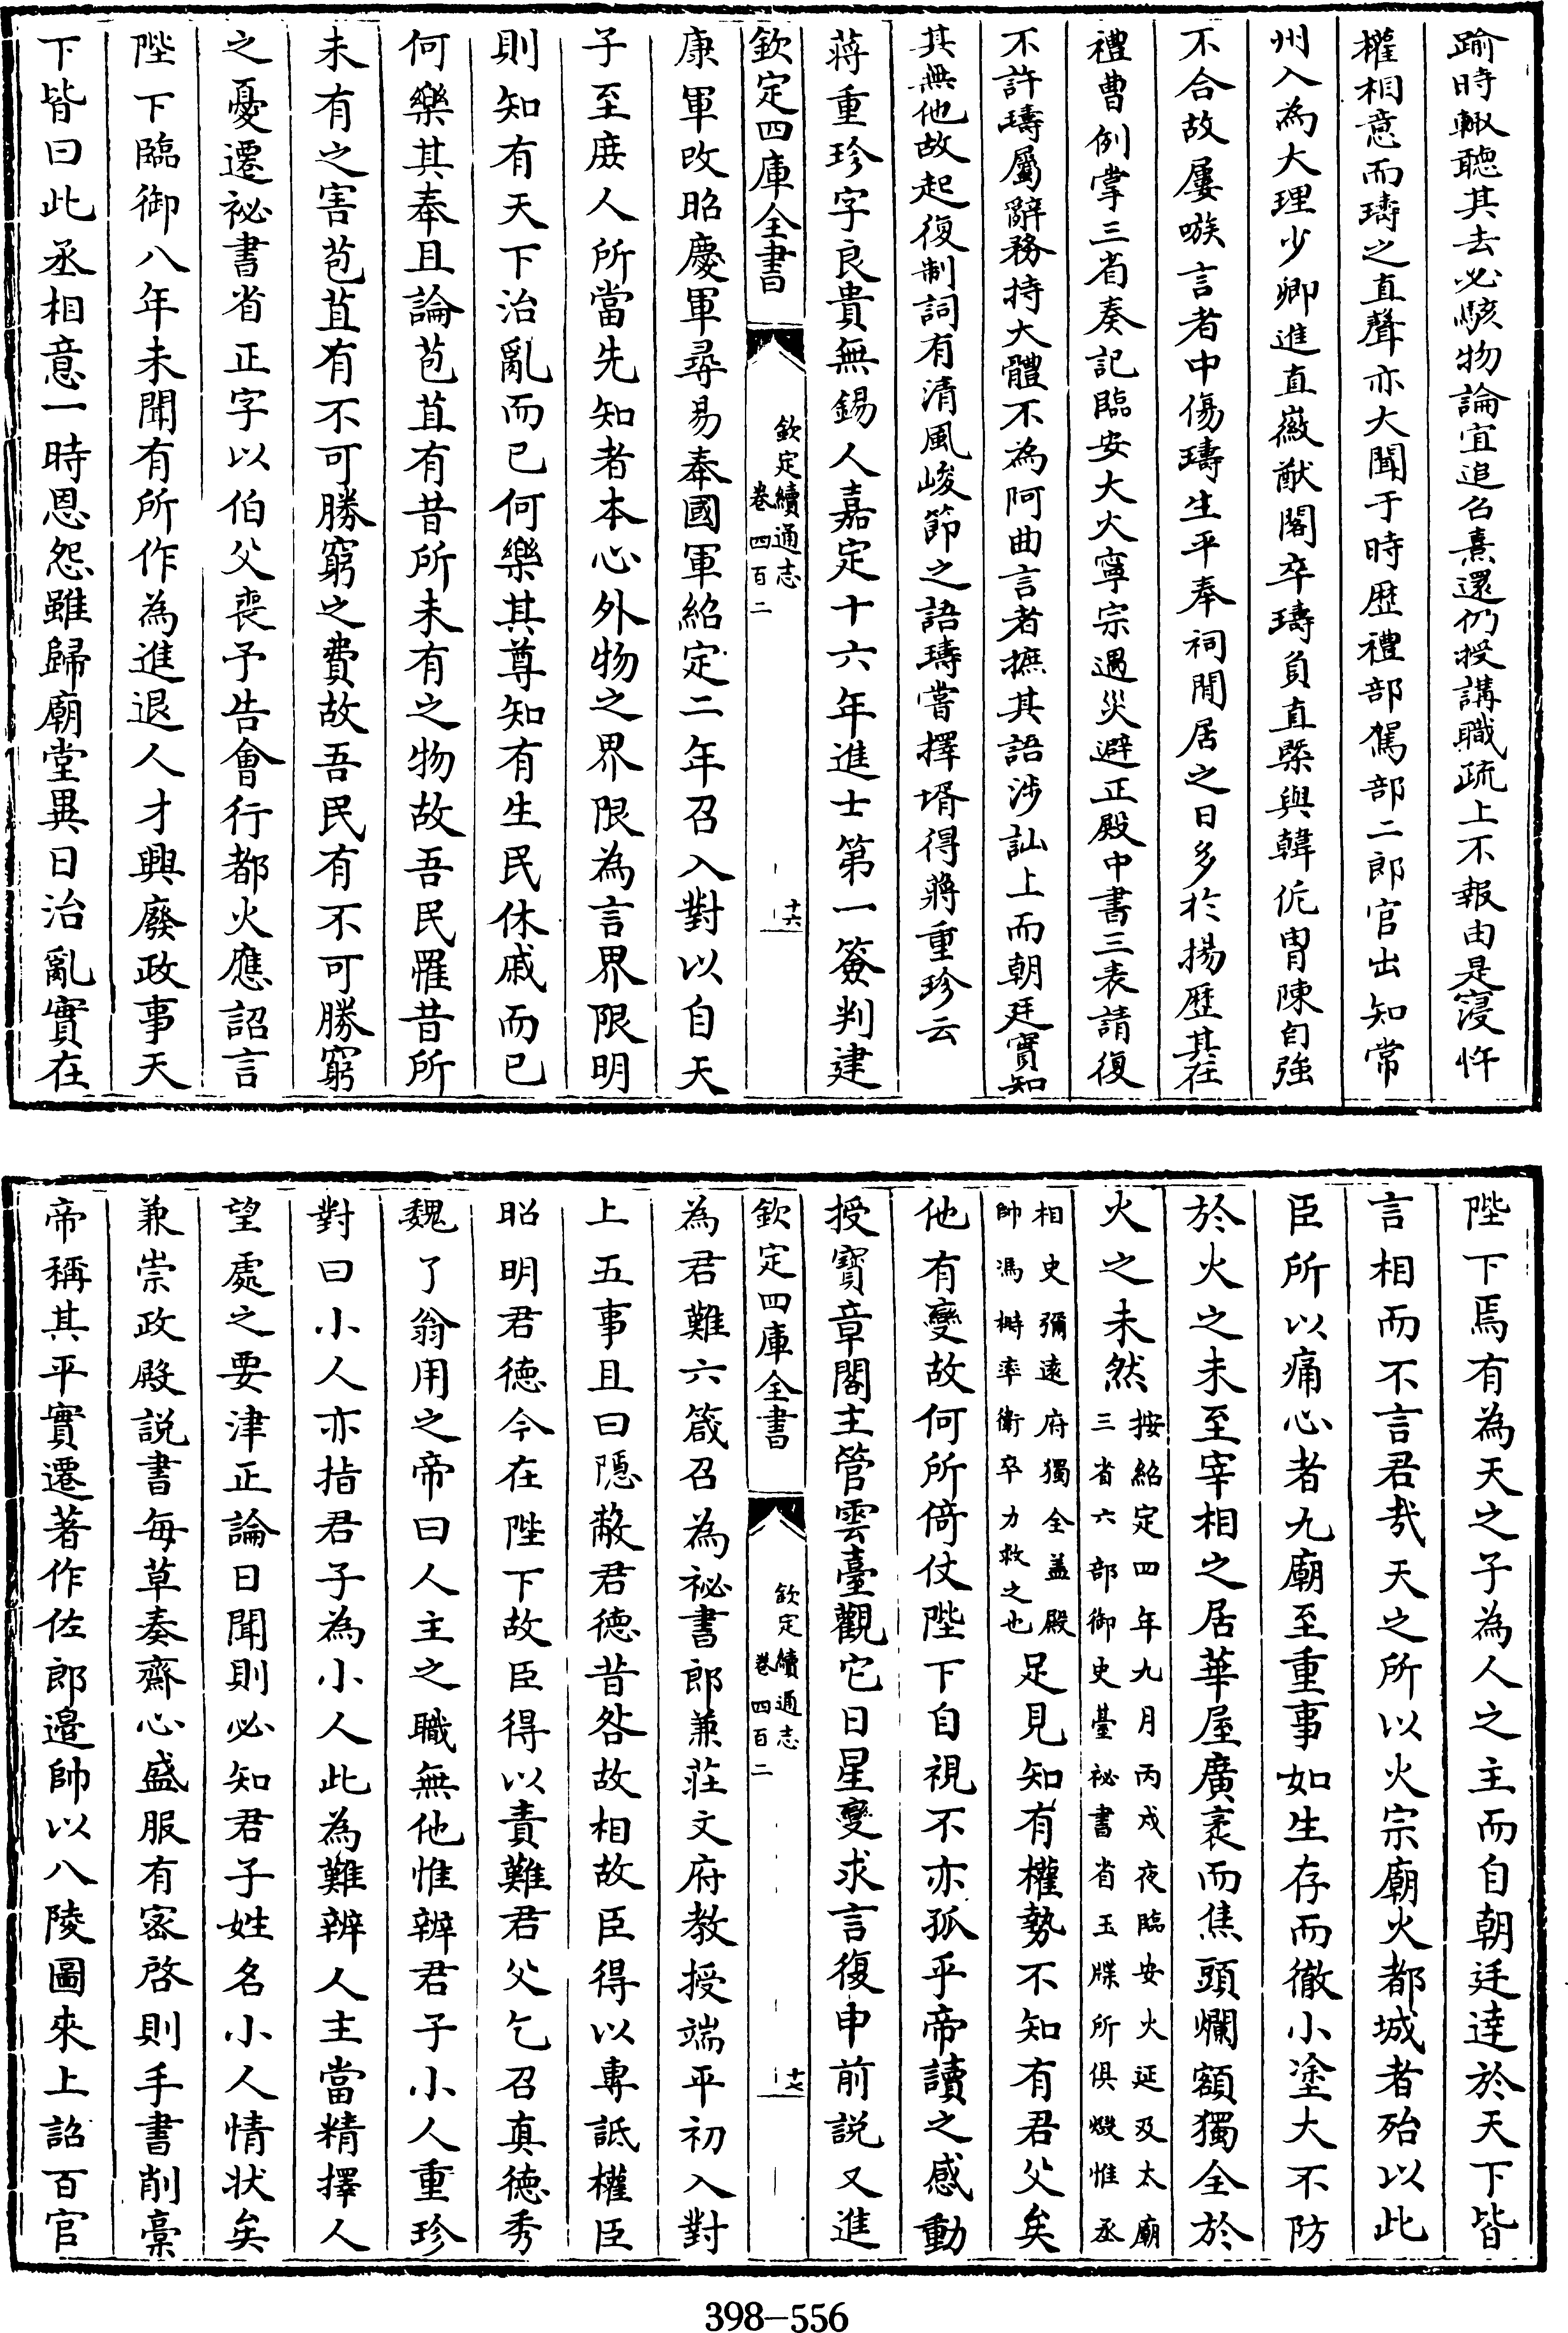 踰時輙聽其去必駭物論宜追召熹還仍授講職疏上不報由是寖忤
權相意而璹之直聲亦大聞于時歴禮部駕部二郎官出知常
州入為大理少卿進直徽猷閣卒璹負直槩與韓侂胄陳自強
不合故屢嗾言者中傷璹生平奉祠閒居之日多於揚歴其在
禮曹例掌三省奏記臨安大火寧宗遇災避正殿中書三表請復
不許璹屬辭務持大體不為阿曲言者摭其語涉訕上而朝廷實知
其無他故起復制詞有清風峻節之語璹嘗擇壻得蔣重珍云
蔣重珍字良貴無錫人嘉定十六年進士第一簽判建
欽定四庫全書
欽定續通志
卷四百二
十六
康軍改昭慶軍尋易奉國軍紹定二年召入對以自天
子至庶人所當先知者本心外物之界限為言界限明
則知有天下治亂而已何樂其尊知有生民休戚而已
何樂其奉且論苞苴有昔所未有之物故吾民罹昔所
未有之害苞苴有不可勝窮之費故吾民有不可勝窮
之憂遷祕書省正字以伯父喪予告會行都火應詔言
陛下臨御八年未聞有所作為進退人才興廢政事天
下皆曰此丞相意一時恩怨雖歸廟堂異日治亂實在
陛下焉有為天之子為人之主而自朝廷達於天下皆
言相而不言君哉天之所以火宗廟火都城者殆以此
臣所以痛心者九廟至重事如生存而徹小塗大不防
於火之未至宰相之居華屋廣袤而焦頭爛額獨全於
火之未然按紹定四年九月丙戍夜臨安火延及太廟
三省六部御史臺祕書省玉牒所俱燬惟丞
相史彌遠府獨全盖殿
帥馮榯率衛卒力救之也足見知有權勢不知有君父矣
他有變故何所倚仗陛下自視不亦孤乎帝讀之感動
授寶章閣主管雲臺觀它日星變求言復申前説又進
欽定四庫全書
欽定續通志
卷四百二
十七
為君難六箴召為祕書郎兼莊文府教授端平初入對
上五事且曰隱蔽君德昔咎故相故臣得以專詆權臣
昭明君德今在陛下故臣得以責難君父乞召真德秀
魏了翁用之帝曰人主之職無他惟辨君子小人重珍
對曰小人亦指君子為小人此為難辨人主當精擇人
望處之要津正論日聞則必知君子姓名小人情狀矣
兼崇政殿説書每草奏齋心盛服有密啓則手書削稾
帝稱其平實遷著作佐郎邉帥以八陵圖來上詔百官
398-556